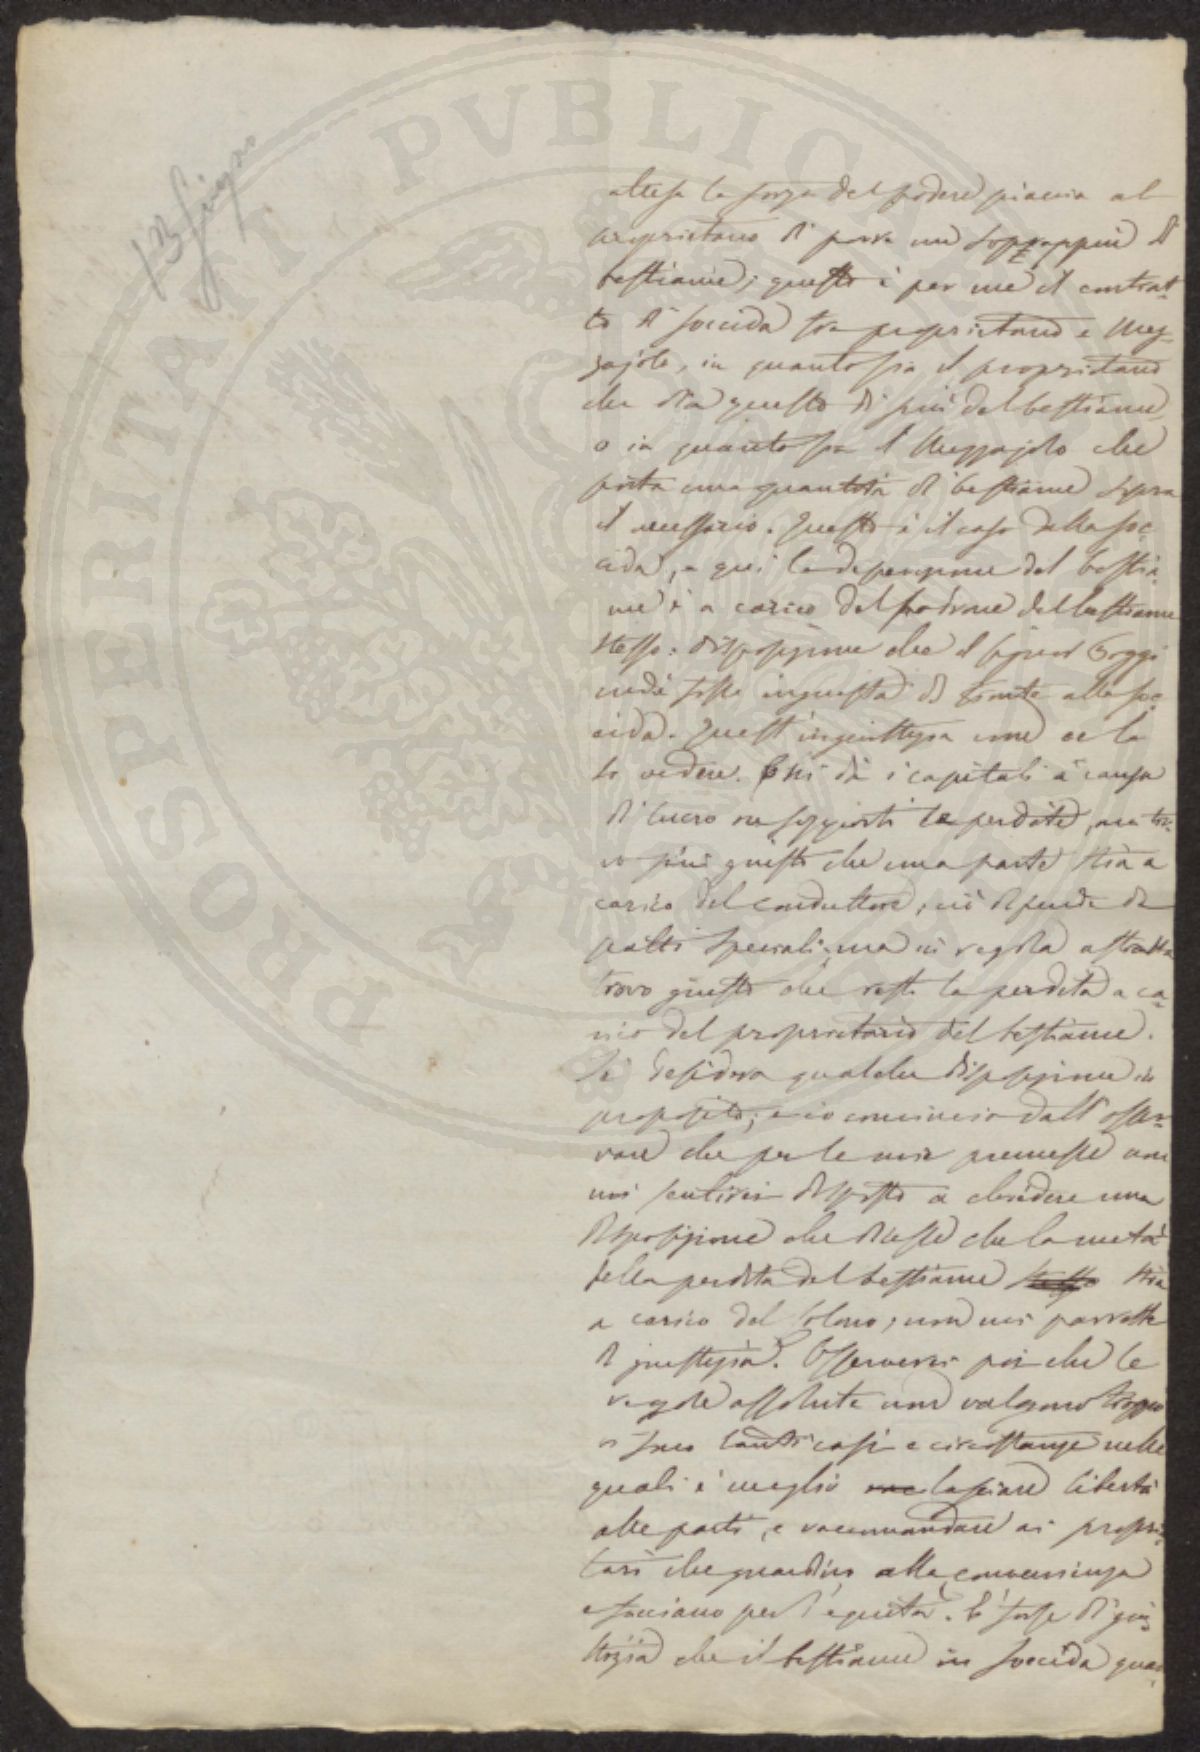 PROSPERITATI PVBLICAE
13 Giugno
attesa la forza del podere piaccia al
proprietario di porre un soprappiù di
bestiame; questo è per me il contrat-
to di soccida tra proprietario e Mez-
zajolo, in quanto sia il proprietario
che dia questo di più del bestiame,
o in quanto sia il Mezzajolo che
porta una quantità di bestiame sopra
il necessario. Questo è il caso della soc-
cida, e qui la deperizione del bestia-
me è a carico del padrone del bestiame
stesso: disposizione che il signor Poggi
crede fosse ingiusta di fronte alla soc-
cida. Quest'ingiustizia non ce la
so vedere. Chi dà i capitali a causa
di lucro ne soggiaccia le perdite, nè tro-
vo più giusto che una parte stia a
carico del conduttore, ciò dipende da
patti speciali, ma in regola astratta
trovo giusto che resti la perdita a ca-
rico del proprietario del bestiame.
Si desidera qualche disposizione in
proposito; e io comincio dall'osser-
vare che per le mie premesse non
mi sentirei disposto a chiedere una
disposizione che dicesse che la metà
della perdita del bestiame stesso stia
a carico del Colono; non mi parrebbe
di giustizia. Osserverei poi che le
regole assolute non valgono troppo
vi sono tanti casi e circostanze nelle
quali è meglio lasciare libertà
alle parti, e raccomandare ai proprie-
tari che guardino alla convenienza
e facciano per l'equità. È forse di giu-
stizia che il bestiame in soccida quan-